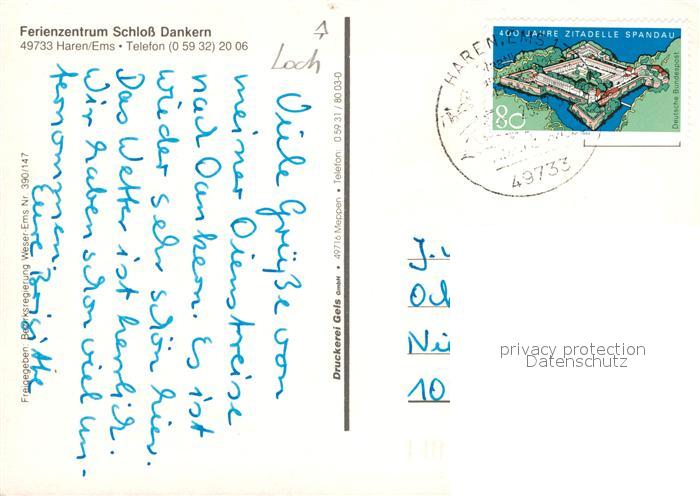 Ferienzentrum Schloß Dankern
49733 Haren/Ems • Telefon (0 59 32) 20 06
Loch
Viele Grüße von
meiner Dienstreise
nach Dankern. Es ist
wieder sehr schön hier.
Das Wetter ist herrlich.
Wir haben schon viel un-
ternommen.
Eure Brigitte
Freigegeben: Bezirksregierung Weser-Ems Nr. 390/147
Druckerei Gels GmbH • 49716 Meppen • Telefon: 0 59 31 / 80 03-0
HAREN, EMS
49733
400 JAHRE ZITADELLE SPANDAU
80
Deutsche Bundespost
10
privacy protection
Datenschutz